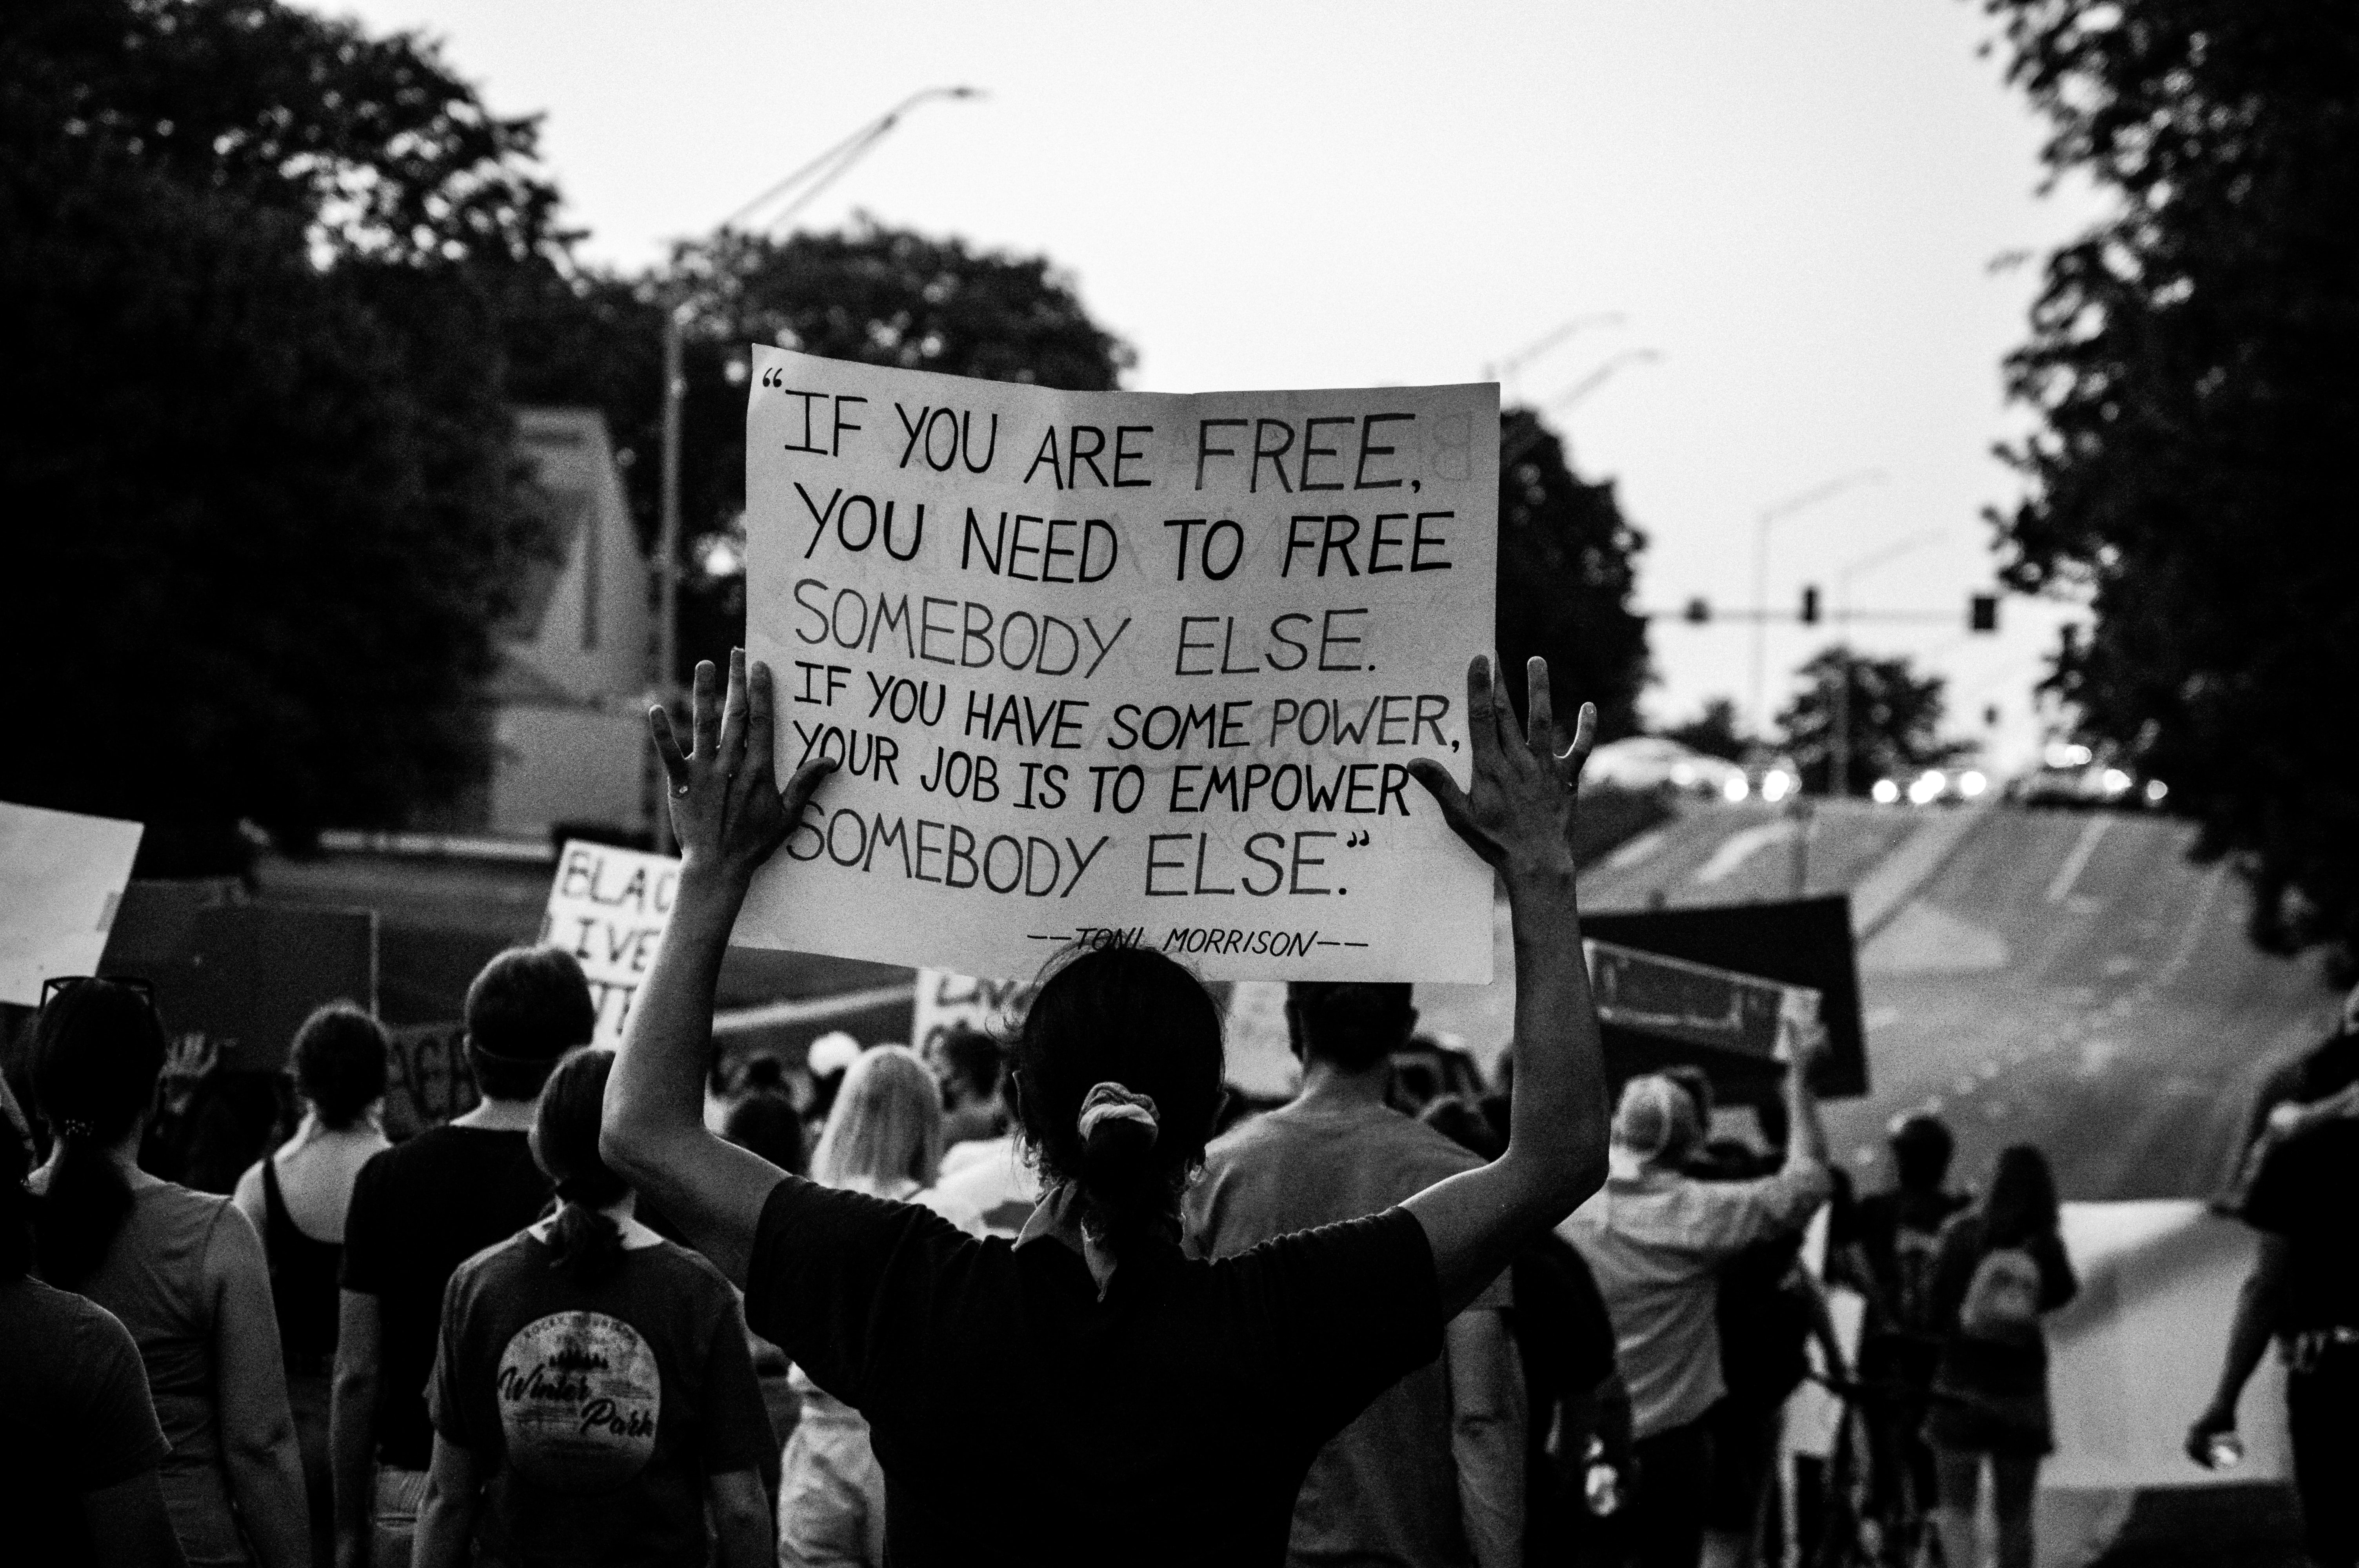 “IF YOU ARE FREE,
YOU NEED TO FREE
SOMEBODY ELSE.
IF YOU HAVE SOME POWER,
YOUR JOB IS TO EMPOWER
SOMEBODY ELSE.”
——TONI MORRISON——
BLAC
LIVE
Winter
Park